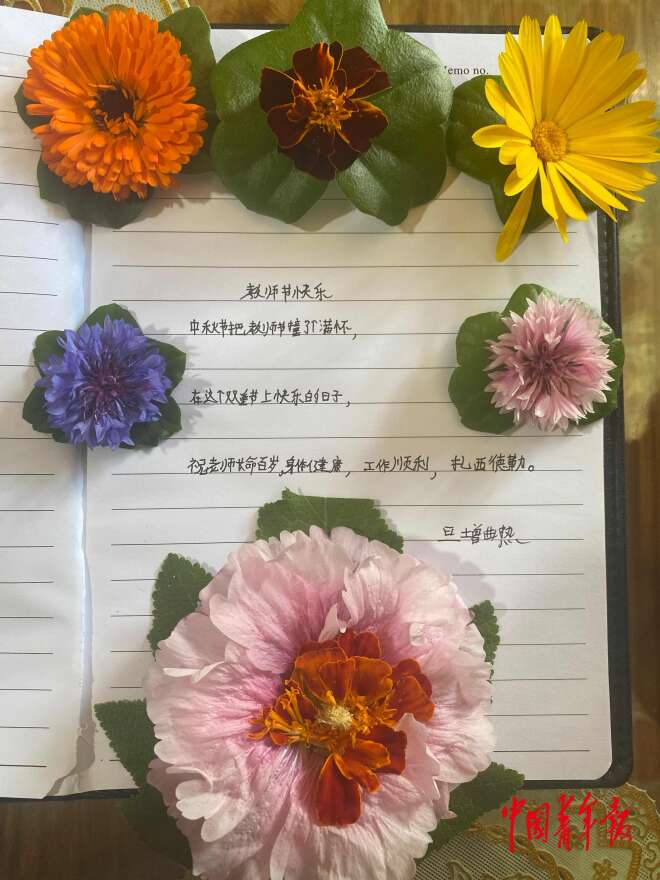 emo no.
教师节快乐
中秋节把,教师节撞了个满怀,
在这个双重节上快乐的日子,
祝老师长命百岁,身体健康,工作顺利,扎西德勒。
旦增曲热
中国青年报